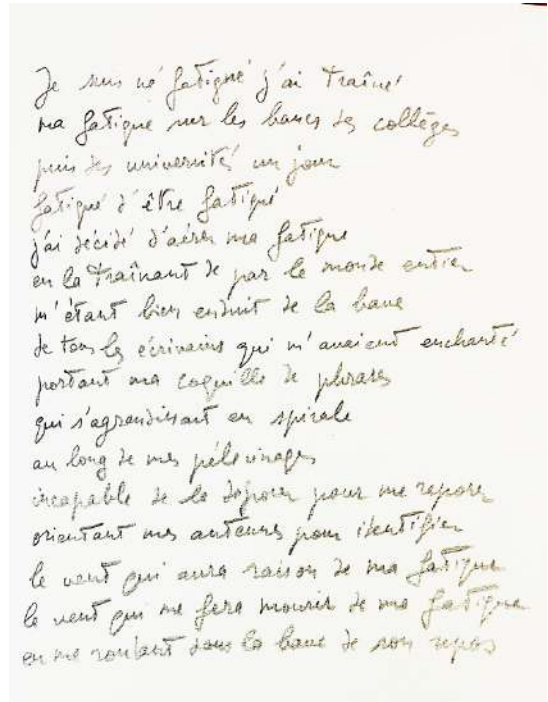 Je suis né fatigué j'ai traîné
ma fatigue sur les bancs des collèges
puis des université un jour
fatigué d'être fatigué
j'ai décidé d'aérer ma fatigue
en la traînant de par le monde entier
m'étant bien enduit de la bave
de tous les écrivains qui m'avaient enchanté
portant ma coquille de phrases
qui s'agrandissant en spirale
au long de mes pélerinages
incapable de la déposer pour me reposer
orientant mes antennes pour identifier
le vent qui aura raison de ma fatigue
le vent qui me fera mourir de ma fatigue
en me roulant dans la bave de son repos